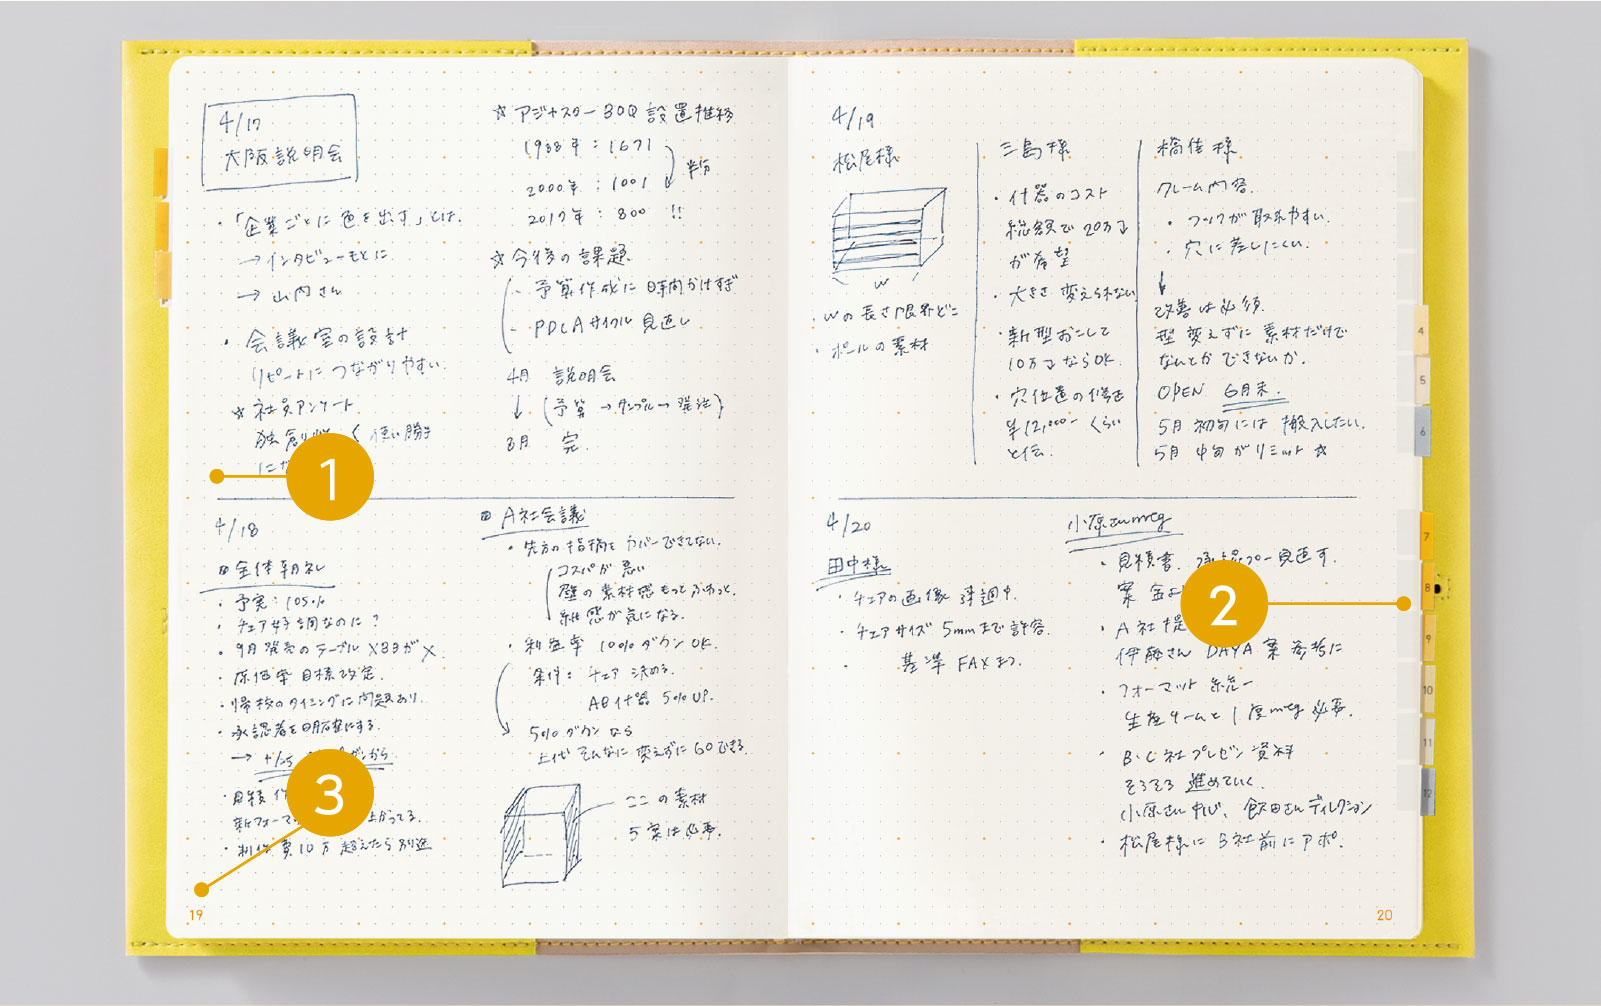 4/17
大阪説明会
・「企業ごとに色を出す」とは.
→インタビューもとに
→山内さん
・会議室の設計
リピートにつながりやすい.
☆社員アンケート
使い勝手
1
☆アジャスター300設置推移
1988年:1671
2000年:1001
半分
2017年:800 !!
☆今後の課題
・予算作成に時間かけすぎ
・PDCAサイクル見直し
4月 説明会
↓(予算→サンプル→発注)
8月 完.
4/18
全体朝礼
・予実:105%
・チェア好調なのに?
・9月発売のテーブルX33が×.
・原価率目標改定.
・帰校のタイミングに問題あり.
・承認者を明確にする.
→4/25 から
3
・見積作
新フォーマ 上がってる.
・制作費10万超えたら別途
A社会議
・先方の指摘をカバーできてない.
コスパが悪い
壁の素材感もっとふわっと.
細感が気になる.
・利益率10%ダウンOK.
条件:チェア決める.
AB什器5%UP.
5%ダウンなら
上代そんなに変えずにGOできる.
ここの素材
5案は必要.
19
4/19
松尾様
W
・Wの長さ限界どこ
・ポールの素材
三島様
・什器のコスト
総額で20万
が希望
・大きさ変えられない
・新型おこして
10万ならOK.
・穴位置の修正
¥12,000-くらい
と伝.
橋佳様
クレーム内容.
・フックが取れやすい.
・穴に差しにくい.
↓
改善は必須.
型変えずに素材だけで
なんとかできないか.
OPEN 6月末.
5月初旬には搬入したい.
5月中旬がリミット☆
4/20
田中様
・チェアの画像準調中.
・チェアサイズ5mmまで許容.
・基準FAXまつ.
小原さんmtg
・見積書、承認フロー見直す.
案
2
・A社提
伊藤さんDAYA案参考に
・フォーマット統一
生産チームと1度mtg必要.
・B・C社プレゼン資料
そろそろ進めていく.
小原さん中心、飯田さんディレクション
・松尾様にB社前にアポ.
20
4
5
6
7
8
9
10
11
12